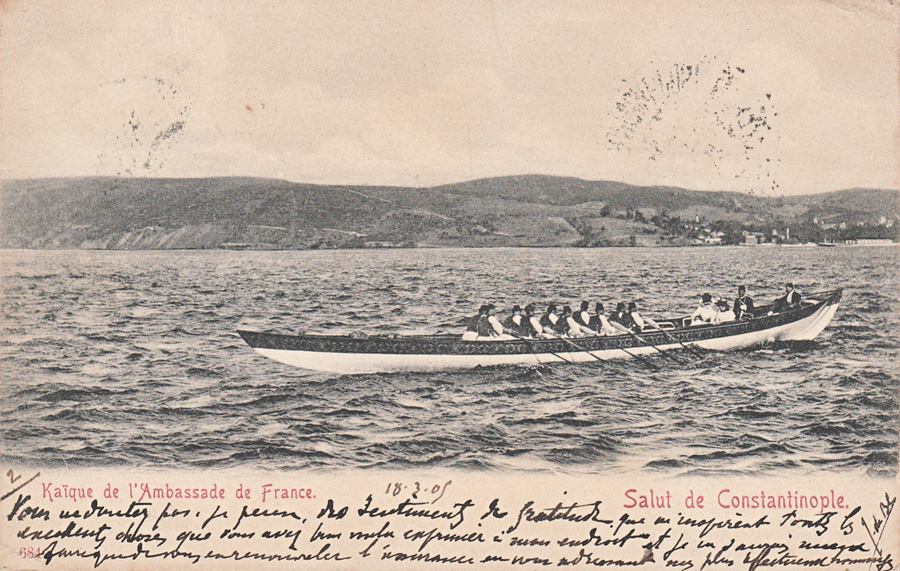 2
Kaïque de l'Ambassade de France.
18·3·05
Salut de Constantinople.
Vous ne doutez pas, je pense, des sentiments de gratitude que m'inspirent toutes les
excellentes choses que vous avez bien voulu exprimer à mon endroit et je
684
de vous en renouveler l'assurance en vous adressant mes plus affectueux hommages